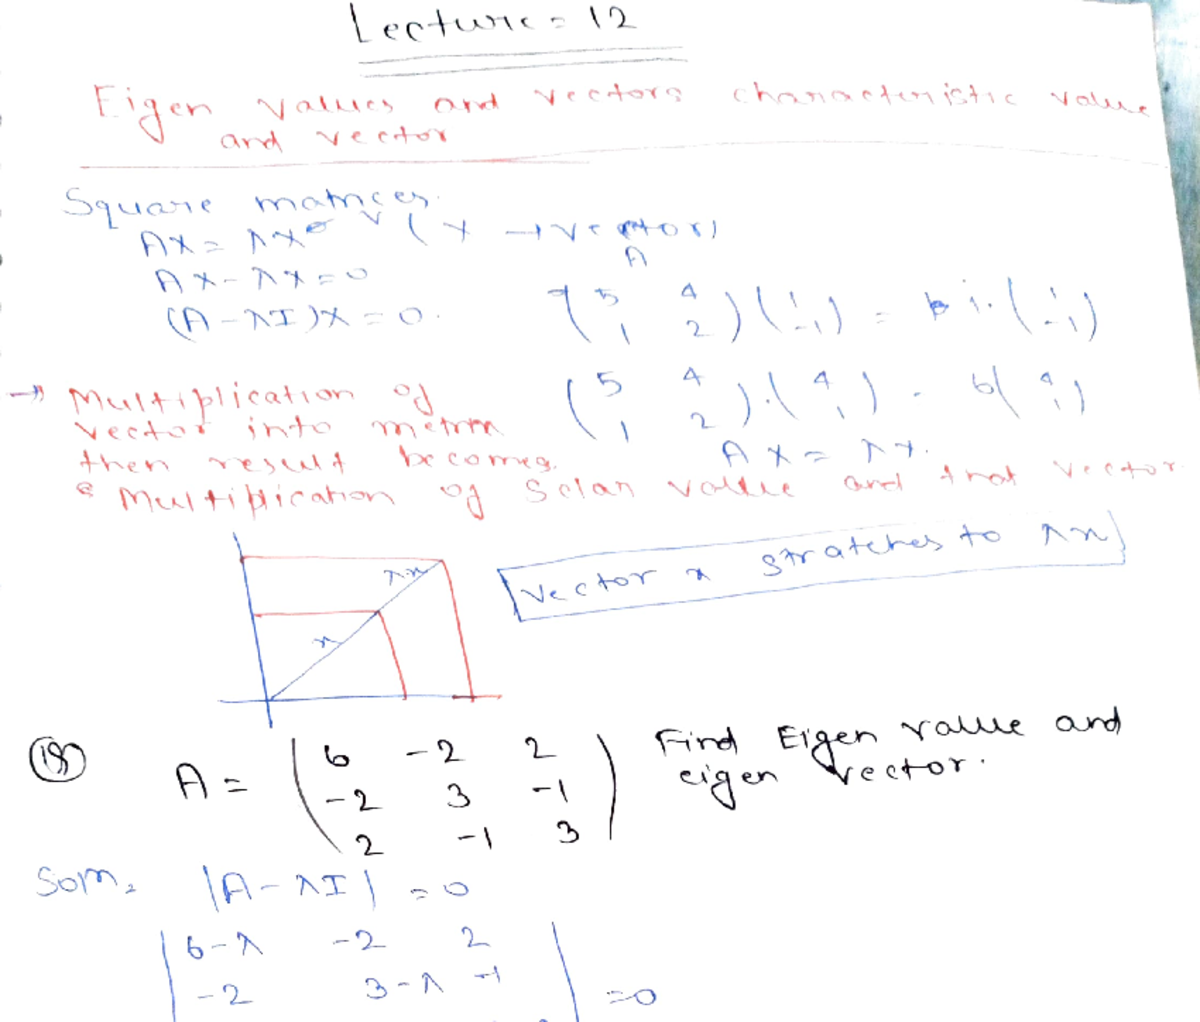 Lecture = 12
Eigen values and vectors characteristic value
and vector
Square matrices.
AX = λX (X → vector)
AX - λX = 0
(A - λI)X = 0.
A
(5 4
1 2) (1
-1) = 1. (1
-1)
(5 4
1 2) . (4
1) = 6 (4
1)
AX = λX.
→ Multiplication of
vector into
then result becomes
Multiplication of Scalar value and that vector
λx
x
Vector x stratches to λx
A = (6 -2 2
-2 3 -1
2 -1 3)
Find Eigen value and
eigen vector.
Som,
|A - λI| = 0
|6-λ -2 2
-2 3-λ -1
| = 0